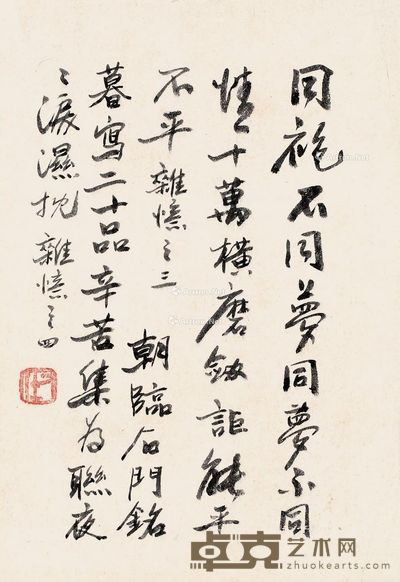 同袍不同夢同夢不同
情十萬橫磨劍詎能平
不平雜憶之三 朝臨石門銘
暮寫二十品辛苦集為聯夜
〻淚濕枕雜憶之四
卓克艺术网
zhuokearts.com